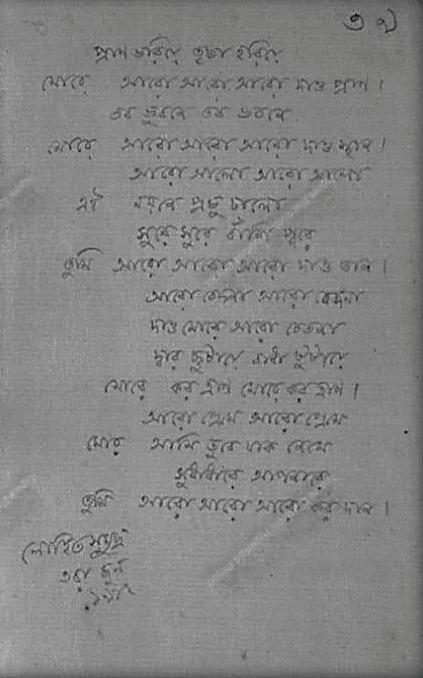 ৩৭
প্রাণ ভরিয়ে তৃষা হরিয়ে
মোরে আরো আরো আরো দাও প্রাণ।
তব ভুবনে তব ভবনে
মোরে আরো আরো আরো দাও স্থান।
আরো আলো আরো আলো
এই নয়নে প্রভু ঢালো
সুরে সুরে বাঁশি পূরে
তুমি আরো আরো আরো দাও তান।
আরো বেদনা আরো বেদনা
দাও মোরে আরো চেতনা
দ্বার ছুটায়ে বাধা টুটায়ে
মোরে কর ত্রাণ মোরে কর ত্রাণ।
আরো প্রেমে আরো প্রেমে
মোর আমি ডুবে যাক নেমে
সুধাধারে আপনারে
তুমি আরো আরো আরো কর দান।
লোহিত সমুদ্র
৩রা জুন